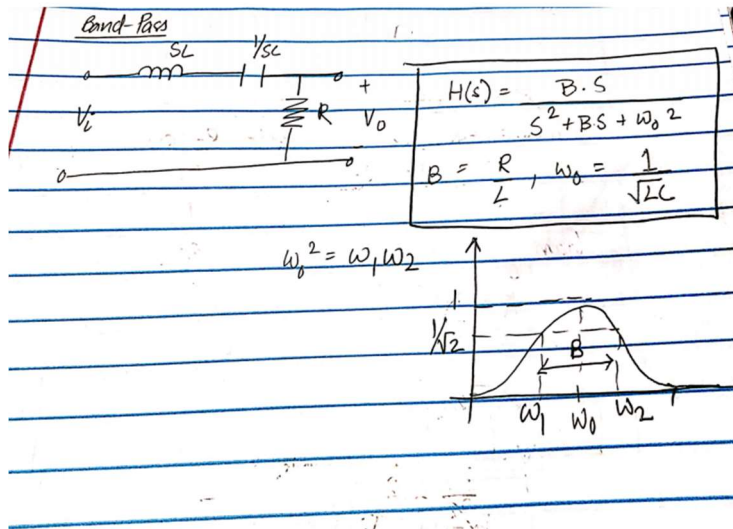 Band-Pass
SL
1/SC
Vi
R
+
Vo
H(s) = B.S / S² + B.S + ω₀²
B = R/L , ω₀ = 1/√LC
ω₀² = ω₁ω₂
1
1/√2
B
ω₁ ω₀ ω₂